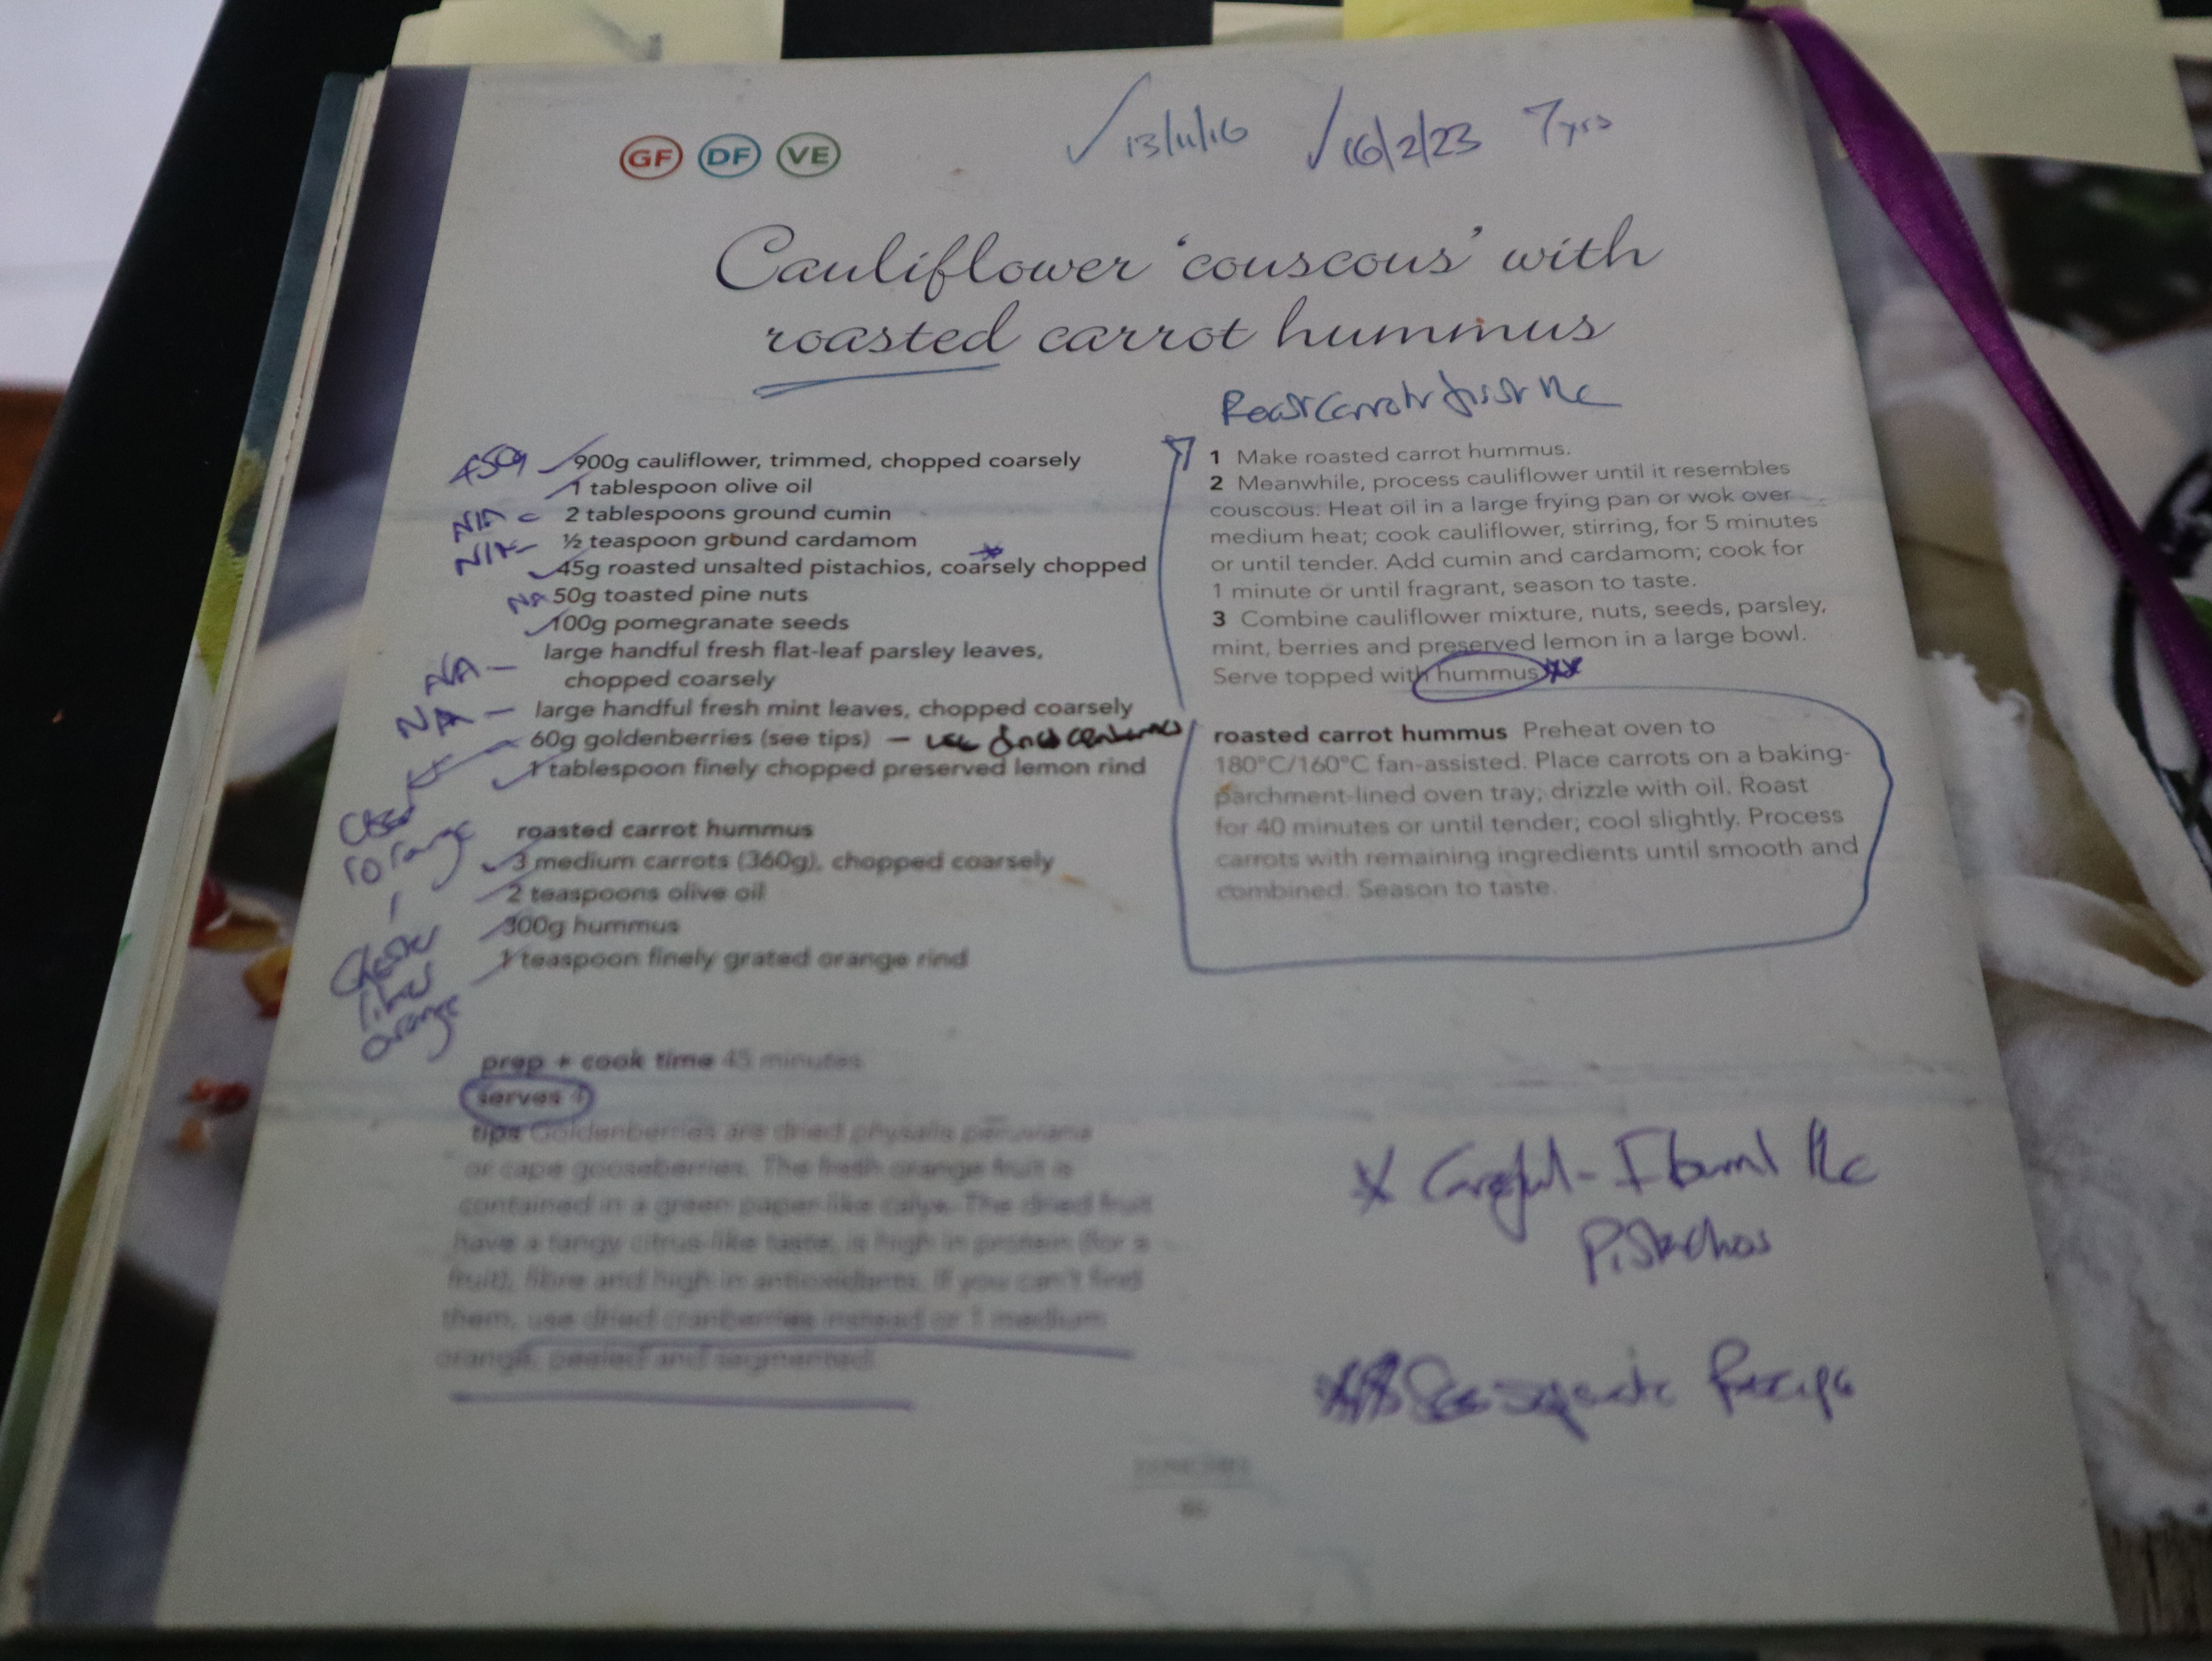 ✓ 13/11/16 ✓ 16/2/23 7yrs
GF DF VE
Cauliflower 'couscous' with
roasted carrot hummus
Roast carrots first
450g
900g cauliflower, trimmed, chopped coarsely
1 tablespoon olive oil
N/A - 2 tablespoons ground cumin
N/A - ½ teaspoon ground cardamom
45g roasted unsalted pistachios, coarsely chopped
NA 50g toasted pine nuts
100g pomegranate seeds
NA - large handful fresh flat-leaf parsley leaves,
chopped coarsely
NA - large handful fresh mint leaves, chopped coarsely
60g goldenberries (see tips) - use dried cranberries
1 tablespoon finely chopped preserved lemon rind
orange
roasted carrot hummus
3 medium carrots (360g), chopped coarsely
2 teaspoons olive oil
300g hummus
1 teaspoon finely grated orange rind
likes
orange
prep + cook time 45 minutes
serves 4
tips Goldenberries are dried physalis peruviana
or cape gooseberries. The fresh orange fruit is
contained in a green paper-like calyx. The dried fruit
have a tangy citrus-like taste, is high in protein (for a
fruit), fibre and high in antioxidants. If you can't find
them, use dried cranberries instead or 1 medium
orange, peeled and segmented.
1 Make roasted carrot hummus.
2 Meanwhile, process cauliflower until it resembles
couscous. Heat oil in a large frying pan or wok over
medium heat; cook cauliflower, stirring, for 5 minutes
or until tender. Add cumin and cardamom; cook for
1 minute or until fragrant, season to taste.
3 Combine cauliflower mixture, nuts, seeds, parsley,
mint, berries and preserved lemon in a large bowl.
Serve topped with hummus. **
roasted carrot hummus Preheat oven to
180°C/160°C fan-assisted. Place carrots on a baking-
parchment-lined oven tray; drizzle with oil. Roast
for 40 minutes or until tender; cool slightly. Process
carrots with remaining ingredients until smooth and
combined. Season to taste.
* Careful - I burnt the
Pistachios
** See separate Recipe